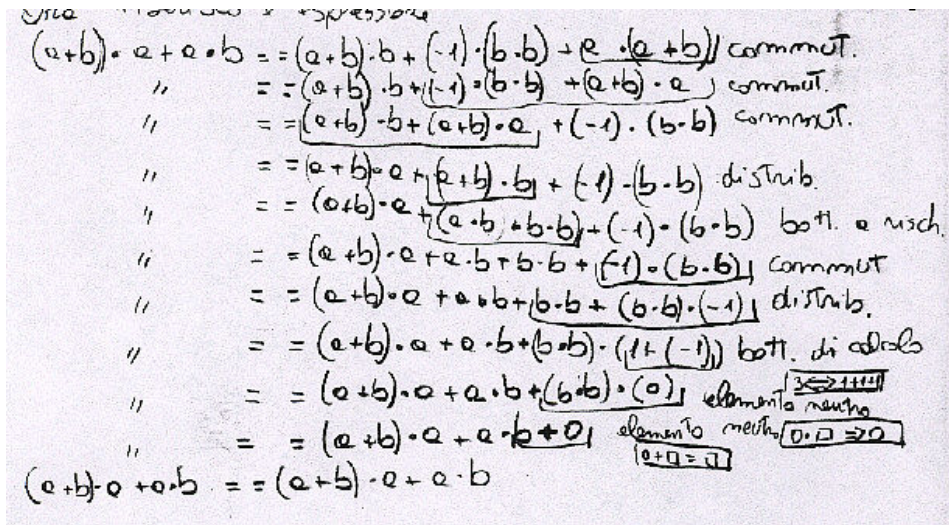 espressione
(a+b)·a+a·b = =(a+b)·b+(-1)·(b·b)+a·(a+b) commut.
" = =(a+b)·b+(-1)·(b·b)+(a+b)·a commut.
" = =(a+b)·b+(a+b)·a+(-1)·(b·b) commut.
" = =(a+b)·a+(a+b)·b+(-1)·(b·b) distrib.
" = =(a+b)·a+(a·b+b·b)+(-1)·(b·b) bott. a risch.
" = =(a+b)·a+a·b+b·b+(-1)·(b·b) commut
" = =(a+b)·a+a·b+b·b+(b·b)·(-1) distrib.
" = =(a+b)·a+a·b+(b·b)·(1+(-1)) bott. di calcolo
" = =(a+b)·a+a·b+(b·b)·(0) elemento neutro
" = =(a+b)·a+a·b+0 elemento neutro 0·□=>0
0+□=□
(a+b)·a+a·b = =(a+b)·a+a·b